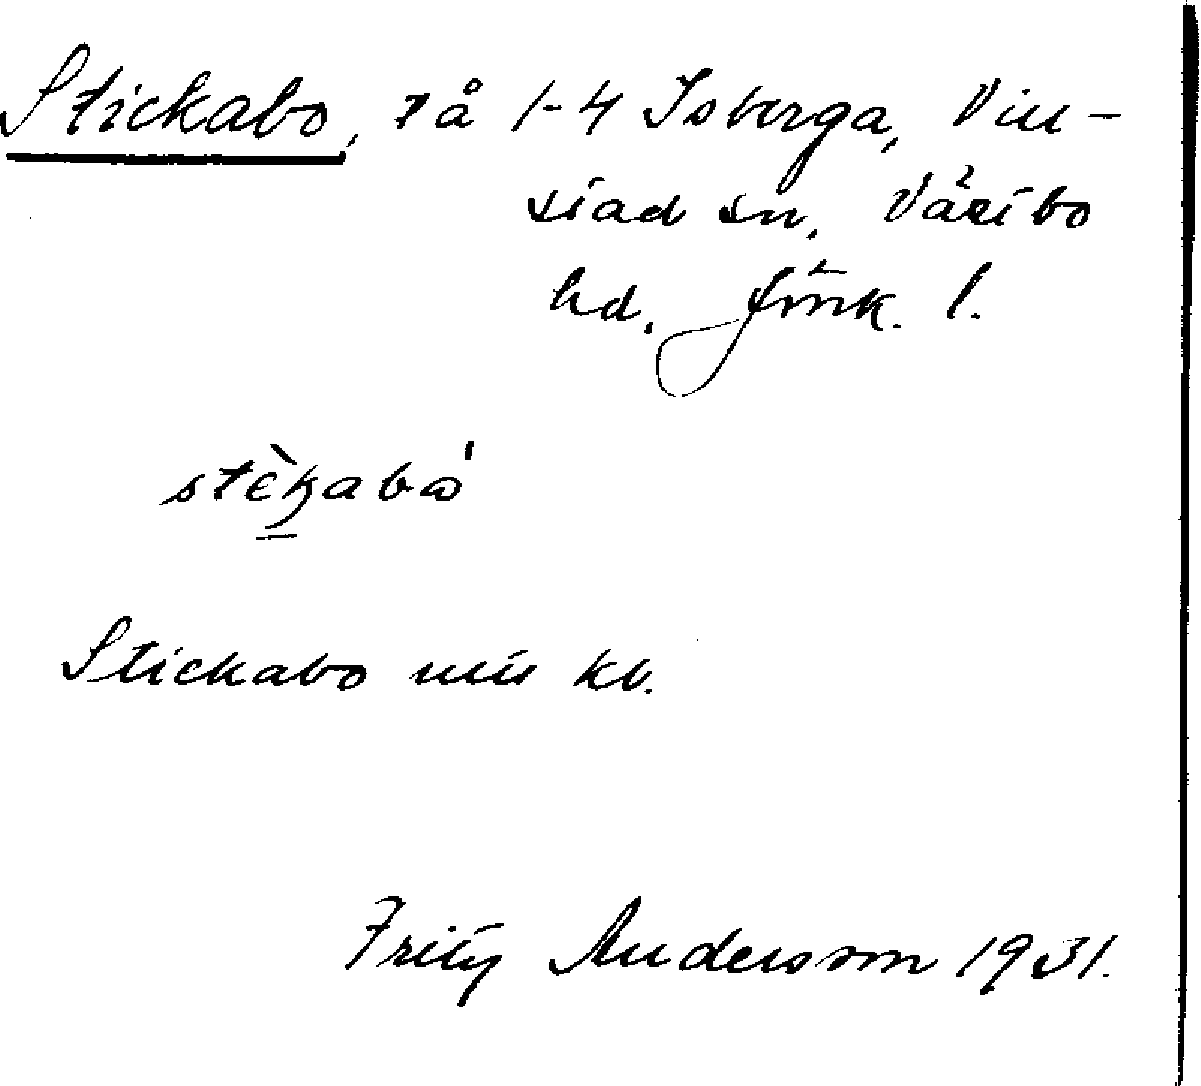 Stickabo, t å 1-4 Isberga, Vill-
stad sn, Västbo
hd, Jönk. l.
stèkabo'
Stickabo kv.
Fritz Andersson 1931.